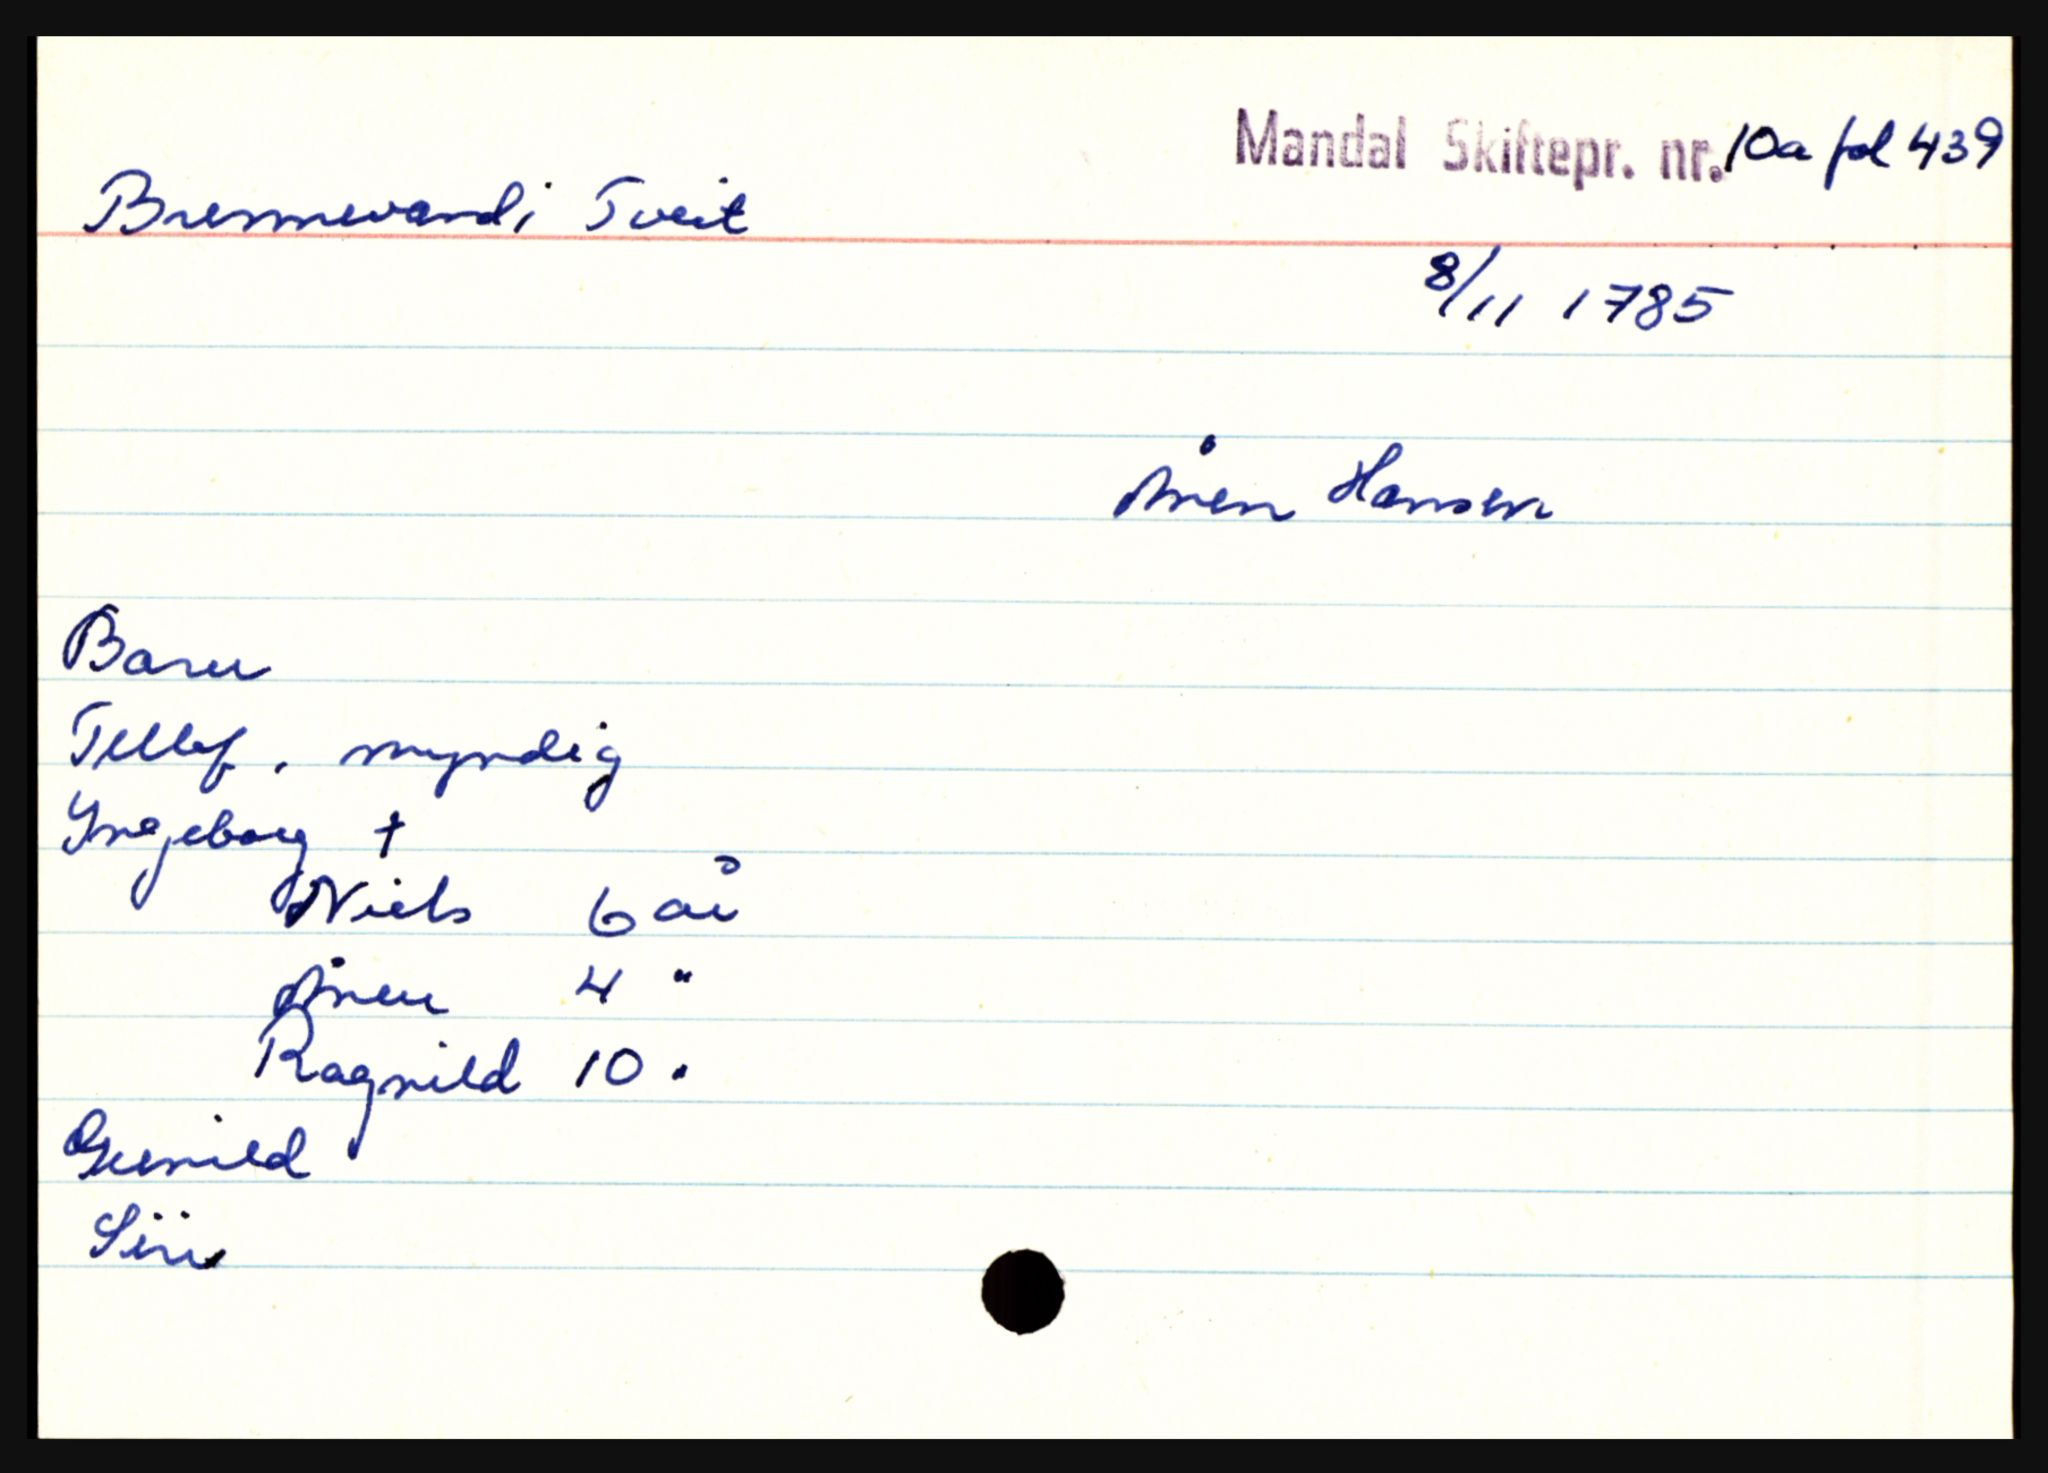 Mandal Skiftepr. nr. 10a fol 439
Brennevand i Tveit
8/11 1785
Ånen Hansen
Baren
Tellef, myndig
Yngeborg †
Niels 6 år
Ånen 4 "
Ragnild 10 "
Gunild
Siri